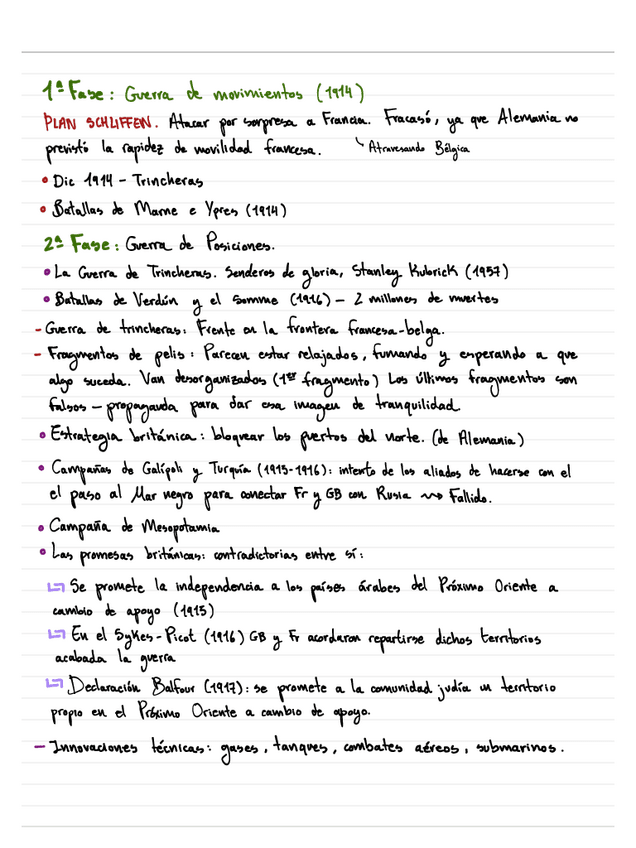 1ª Fase: Guerra de movimientos (1914)
PLAN SCHLIFFEN. Atacar por sorpresa a Francia. Fracasó, ya que Alemania no
previstó la rapidez de movilidad francesa. Atravesando Bélgica
• Dic 1914 - Trincheras
• Batallas de Marne e Ypres (1914)
2ª Fase: Guerra de Posiciones.
• La Guerra de Trincheras. Senderos de gloria, Stanley Kubrick (1957)
• Batallas de Verdún y el Somme (1916) - 2 millones de muertos
- Guerra de trincheras: Frente en la frontera francesa-belga.
- Fragmentos de pelis: Parecen estar relajados, fumando y esperando a que
algo suceda. Van desorganizados (1er fragmento) Los últimos fragmentos son
falsos - propaganda para dar esa imagen de tranquilidad
• Estrategia británica: bloquear los puertos del norte. (de Alemania)
• Campañas de Galípoli y Turquía (1915-1916): intento de los aliados de hacerse con el
el paso al Mar negro para conectar Fr y GB con Rusia ⇝ Fallido.
• Campaña de Mesopotamia
• Las promesas británicas: contradictorias entre sí:
Se promete la independencia a los países árabes del Próximo Oriente a
cambio de apoyo (1915)
En el Sykes-Picot (1916) GB y Fr acordaron repartirse dichos territorios
acabada la guerra
Declaración Balfour (1917): se promete a la comunidad judía un territorio
propio en el Próximo Oriente a cambio de apoyo.
- Innovaciones técnicas: gases, tanques, combates aéreos, submarinos.